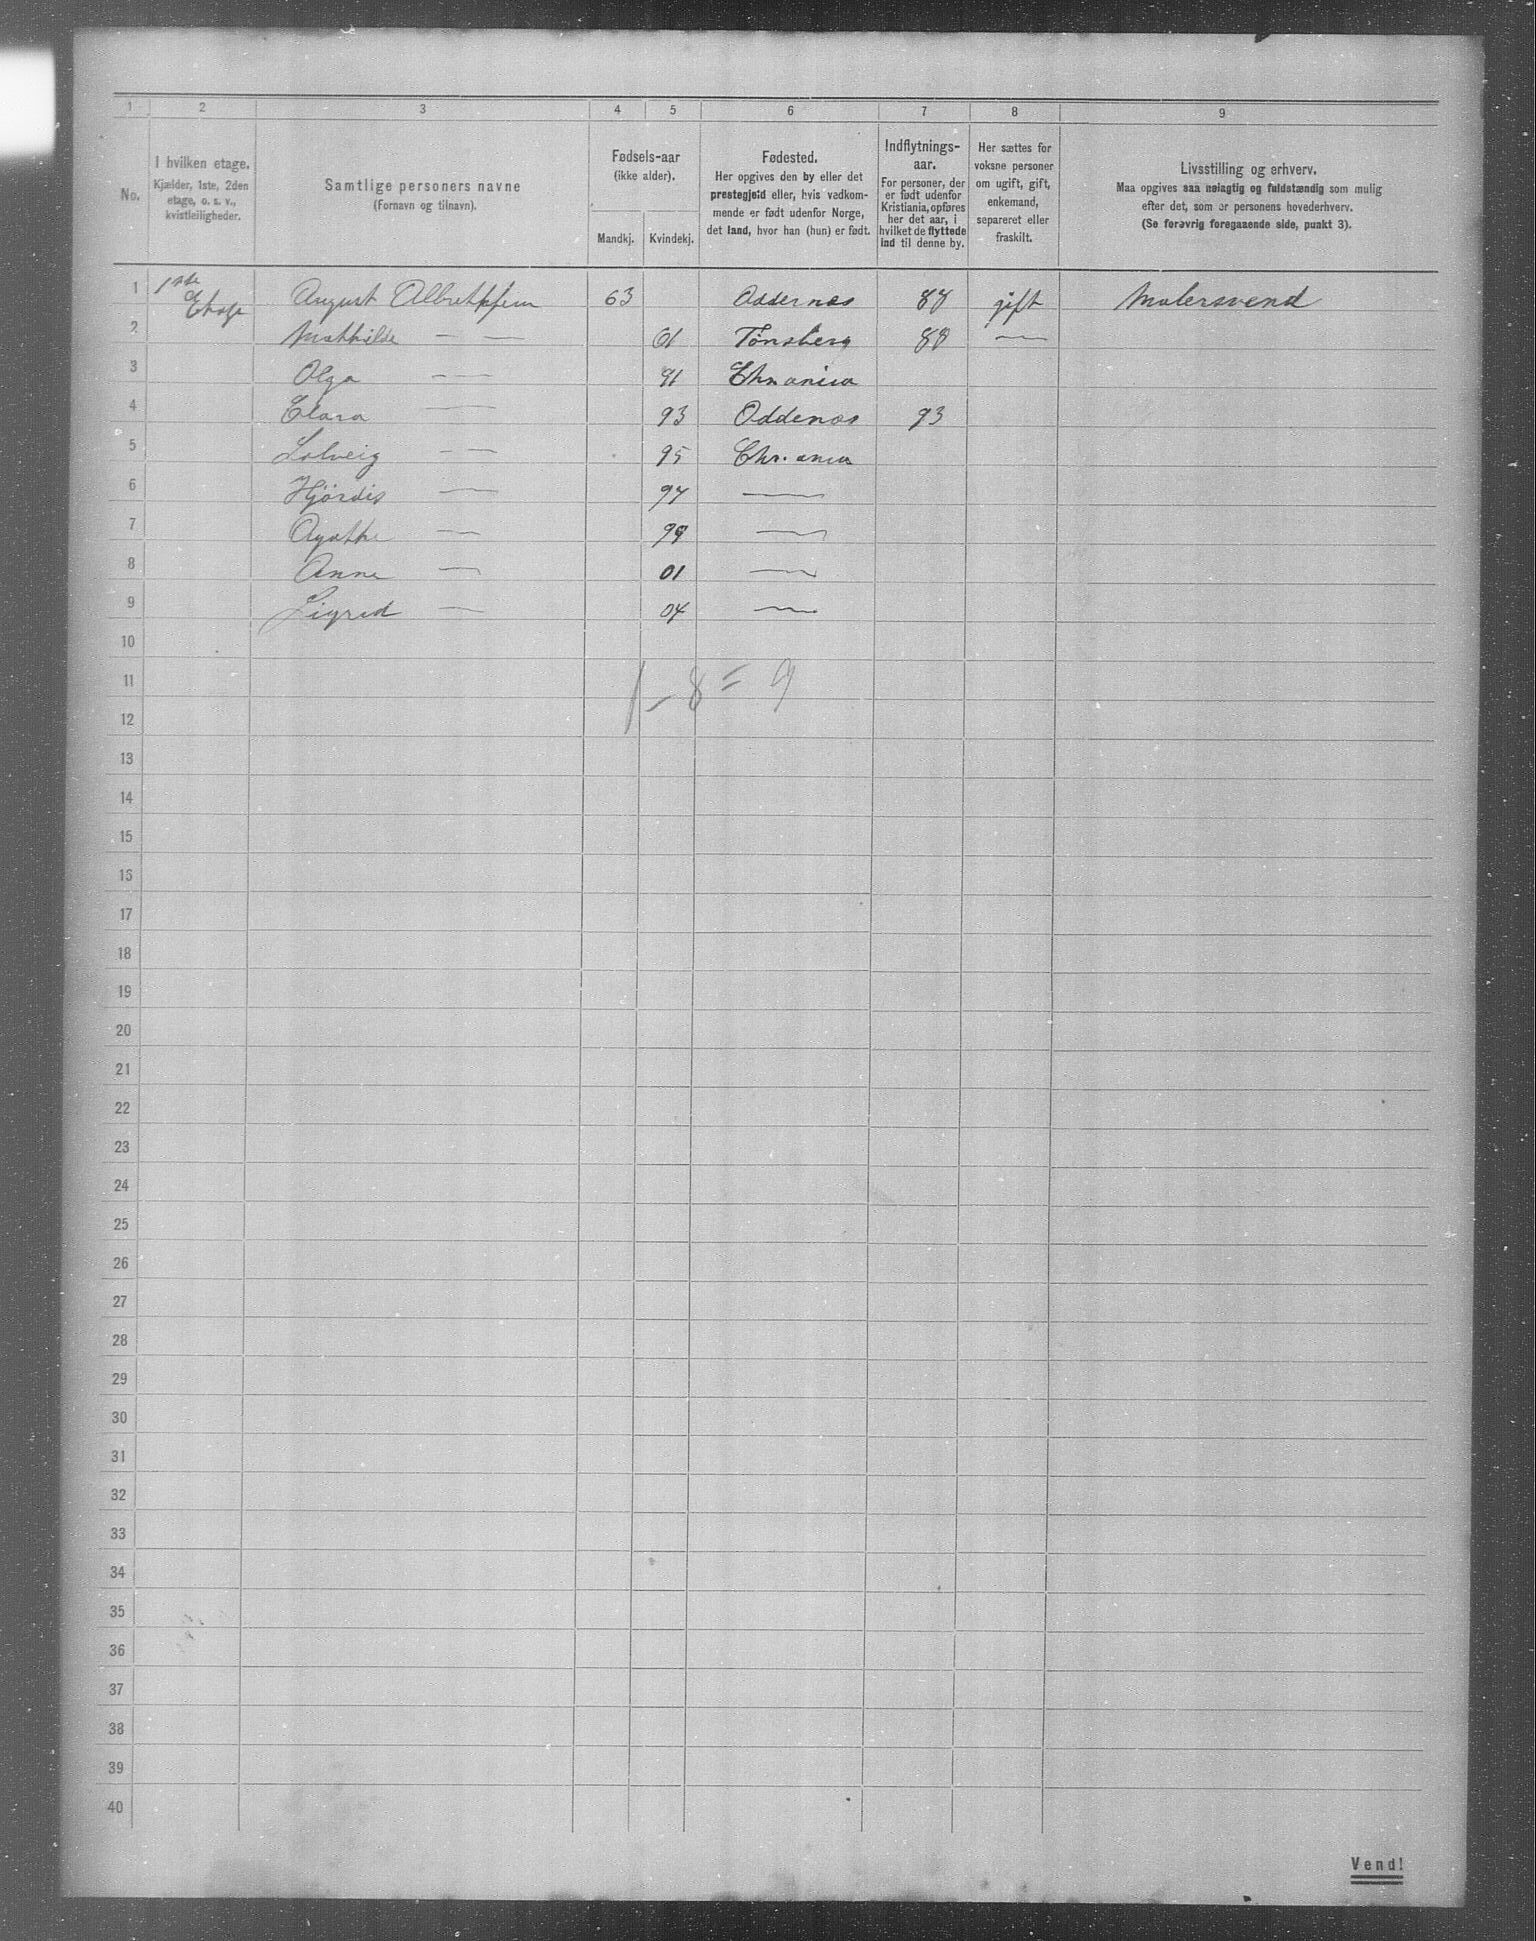 1 2 3 4 5 6 7 8 9
No.
I hvilken etage.
Kjælder, 1ste, 2den
etage, o. s. v.,
kvistleiligheder.
Samtlige personers navne
(Fornavn og tilnavn).
Fødsels-aar
(ikke alder).
Mandkj. Kvindekj.
Fødested.
Her opgives den by eller det
prestegjeld eller, hvis vedkom-
mende er født udenfor Norge,
det land, hvor han (hun) er født.
Indflytnings-
aar.
For personer, der
er født udenfor
Kristiania, opføres
her det aar, i
hvilket de flyttede
ind til denne by.
Her sættes for
voksne personer
om ugift, gift,
enkemand,
separeret eller
fraskilt.
Livsstilling og erhverv.
Maa opgives saa nøiagtig og fuldstændig som mulig
efter det, som er personens hovederhverv.
(Se forøvrig foregaaende side, punkt 3).
1 1ste Etage August 63 Oddernes 88 gift Malersvend
2 Mathilde — — 61 Tønsberg 88 —
3 Olga — — 91 Chr.ania
4 Clara — 93 Oddenes 93
5 Solveig — — 95 Chr.ania
6 Hjørdis — 97 —
7 Agathe — 99 —
8 Anne — 01 —
9 Sigrid — 04 —
10
11 1 – 8 = 9
12
13
14
15
16
17
18
19
20
21
22
23
24
25
26
27
28
29
30
31
32
33
34
35
36
37
38
39
40
Vend!